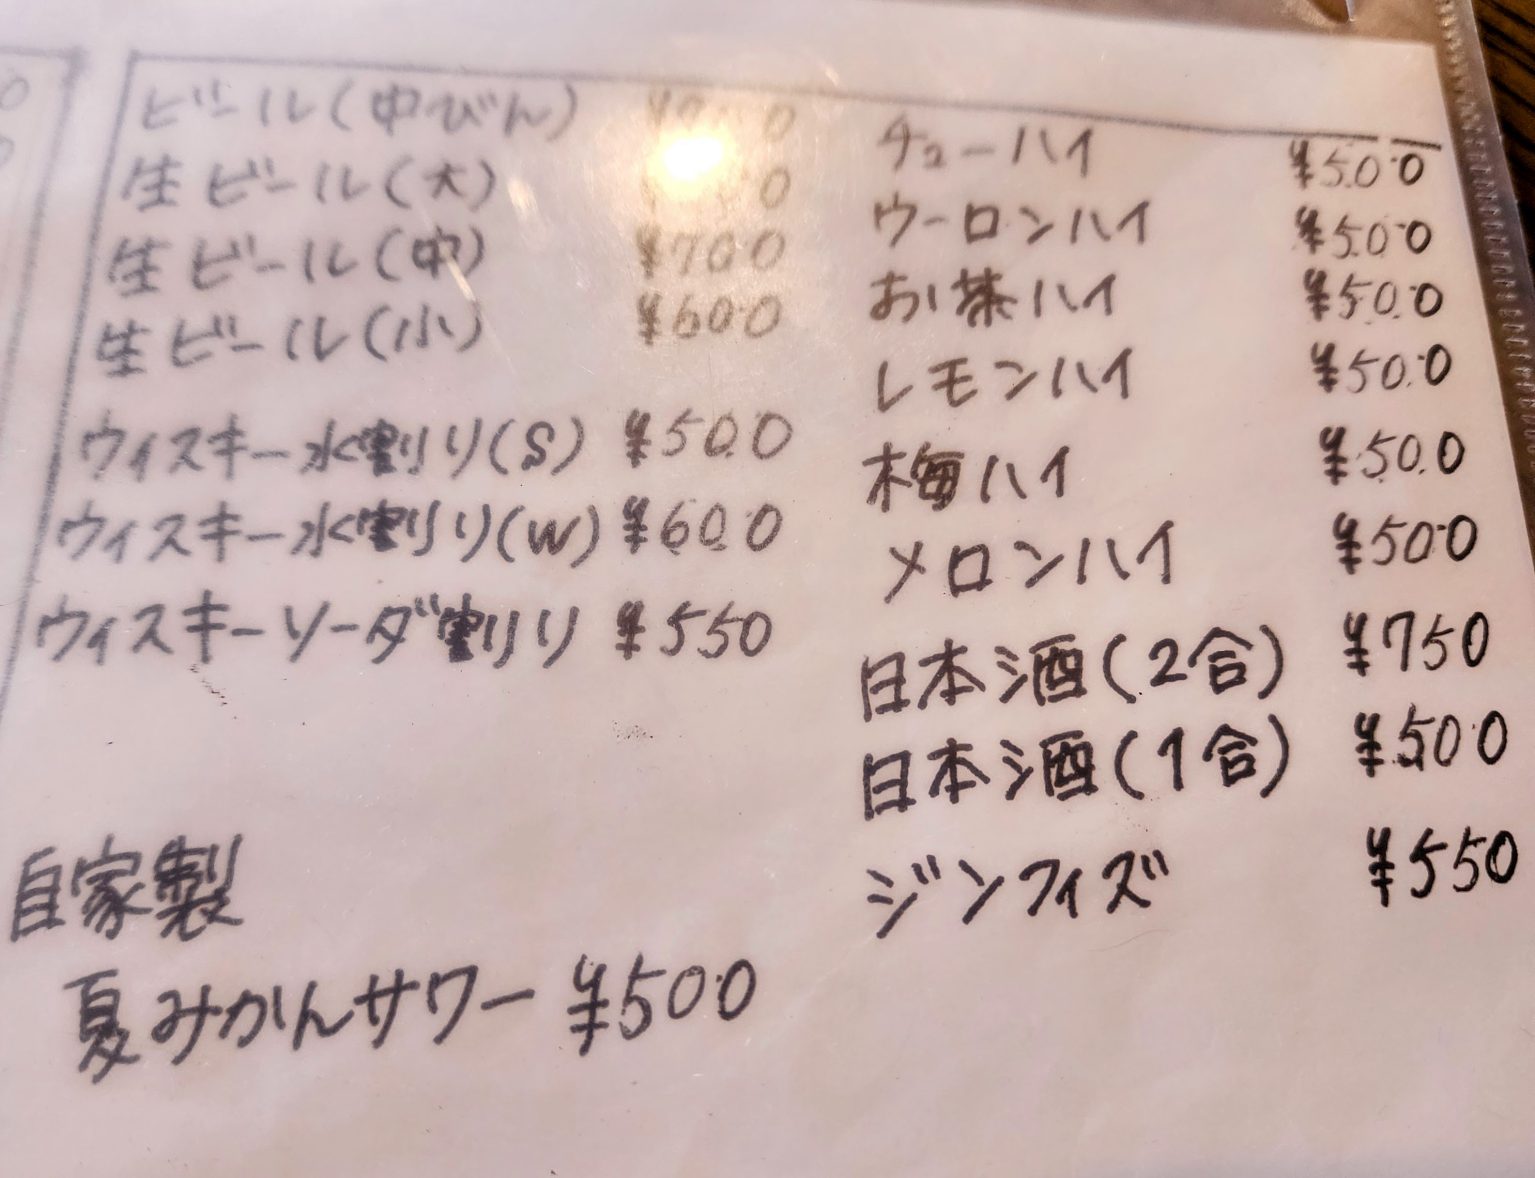 ビール(中びん)
生ビール(大)
生ビール(中) ¥700
生ビール(小) ¥600
ウィスキー水割り(S) ¥500
ウィスキー水割り(W) ¥600
ウィスキーソーダ割り ¥550
自家製
夏みかんサワー ¥500
チューハイ ¥500
ウーロンハイ ¥500
お茶ハイ ¥500
レモンハイ ¥500
梅ハイ ¥500
メロンハイ ¥500
日本酒(2合) ¥750
日本酒(1合) ¥500
ジンフィズ ¥550